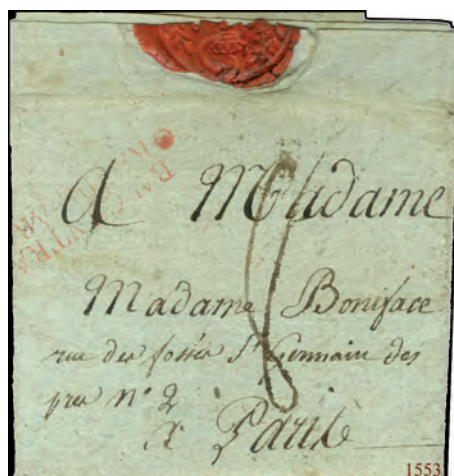 A Madame
Madame Boniface
rue des fossés St Germain des
pres n° 2
a Paris
1553